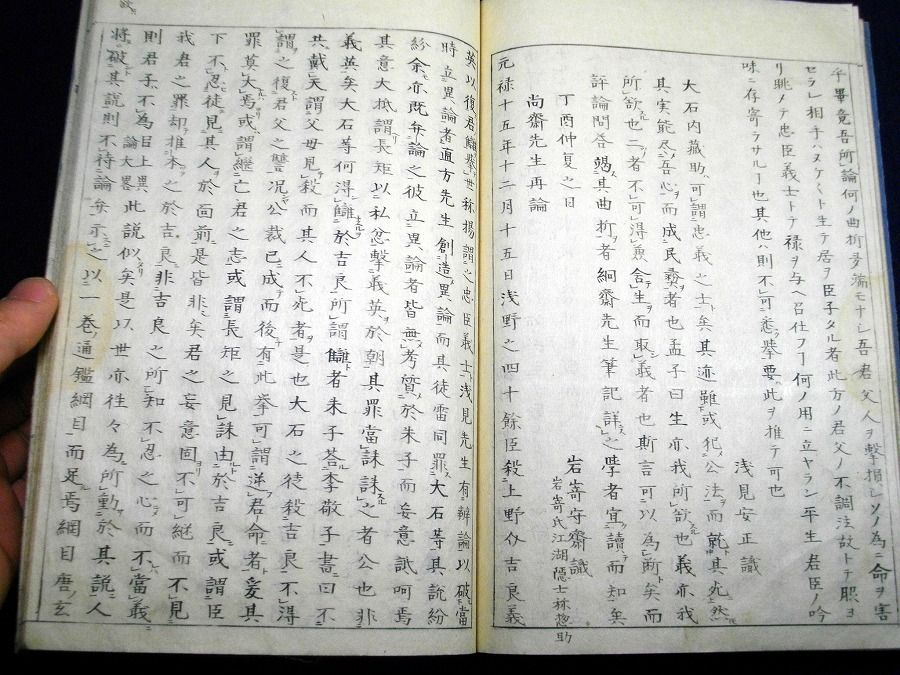 畢竟吾所論何ノ曲折多端モナシ吾君父人ヲ撃損シソノ為ニ命ヲ害
セラレ相手ハヌケ〱ト生テ居ヲ臣子タル者此方ノ君父ノ不調法故トテ眼ヲ
リ眺ノテ忠臣義士トテ禄ヲ与ヘ召仕フヿ何ノ用ニ立ヤラン平生君臣ノ吟
味ニ存寄ラサルヿ也其他ハ則不可悉挙要此ヲ推テ可也
浅見安正識
大石内蔵助可謂忠義之士矣其迹雖或犯公法而就其光然
其実能尽吾心而成民彝者也孟子曰生亦我所欲也義亦我
所欲也二者不可得兼舎生而取義者也斯言可以為断矣而
評論問答竭其曲折者絅斎先生筆記詳之学者宜読而知矣
丁酉仲夏之日
岩嵜守斎識
岩嵜氏江湖隠士称惣助
尚斎先生再論
元禄十五年十二月十五日浅野之四十餘臣殺上野介吉良義
英以復君讎挙世称揚謂之忠臣義士浅見先生有辨論以破當
時立異論者直方先生創造異論而其徒雷同罪大石等其説紛
紛余亦既弁論之彼立異論者皆無考質於朱子而妄意詆呵焉
其意大抵謂長矩以私忿撃義英於朝其罪當誅誅之者公也非
義英矣大石等何得讎於吉良所謂讎者朱子答李敬子書曰不
共戴天謂父母見殺而其人不死者是也大石之徒殺吉良不得
謂之復君父之讐况公裁已成而後有此挙可謂逆君命者爰其
罪莫大焉或謂継亡君之志或謂長矩之見誅由於吉良或謂臣
下不忍徒見其人於面前是皆非矣君之妄意固不可継而不見
我君之罪却推本之於吉良非吉良之所知不忍之心而不當義
則君子不為日上異論大畧此説似矣是以世亦往々為所動於其説人
将破其説則不待論弁示之以一巻通鑑綱目而足焉綱目唐玄